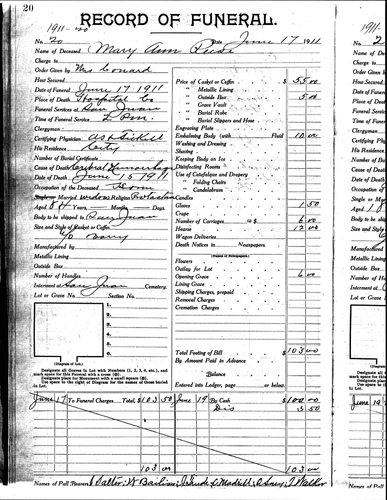 20
1911-20
RECORD OF FUNERAL.
No. 20
Date June 17 1911
Name of Deceased Mary Ann
Charge to
Order Given by Mrs Conard
How Secured
Date of Funeral June 17 1911
Place of Death Hospital Co
Funeral Services at San Juan
Time of Funeral Service 2 P.m.
Clergyman
Certifying Physician
His Residence City
Number of Burial Certificate
Cause of Death Cerebral Hemorrhage
Date of Death June 15 1911
Occupation of the Deceased Dom
Single or Married widow Religion Protestan
Aged 84 Years Months Days
Body to be shipped to San Juan
Size and Style of Casket or Coffin
Manufactured by
Metallic Lining
Outside Box
Number of Handles
Interment at San Juan Cemetery.
Lot or Grave No. Section No.
1.
2.
3.
4.
5.
6.
(Diagram of Lot.)
Designate all Graves in Lot with Numbers (1, 2, 3, 4, etc.), and mark space for this Funeral with a cross (✕).
Designate place for Monument with a small square (□).
Use the space to the right of Diagram for the names of those buried in Lot.
Price of Casket or Coffin $ 55 00
" Metallic Lining
" Outside Box 5 00
" Grave Vault
" Burial Robe
" Burial Slippers and Hose
Engraving Plate
Embalming Body (with Fluid 10 00
Washing and Dressing
Shaving
Keeping Body on Ice
Disinfecting Rooms
Use of Catafalque and Drapery
" Folding Chairs
" Candelabrum
Candles
Gloves 1 50
Crape
Number of Carriages @ $ 6 00
Hearse 12 00
Wagon Deliveries
Death Notices in Newspapers.
Flowers
Outlay for Lot
Opening Grave 6 00
Lining Grave
Shipping Charges, prepaid
Removal Charges
Cremation Charges
Total Footing of Bill $ 103 00
By Amount Paid in Advance
Balance
Entered into Ledger, page or below.
June 17 To Funeral Charges Total, $ 103 50 June 19 By Cash $ 100 00
Dis 3 50
103 00 103 00
Names of Pall Bearers